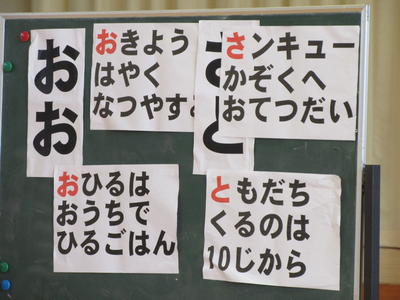 おお
おきよう
はやく
なつやす
さと
サンキュー
かぞくへ
おてつだい
おひるは
おうちで
ひるごはん
ともだち
くるのは
10じから